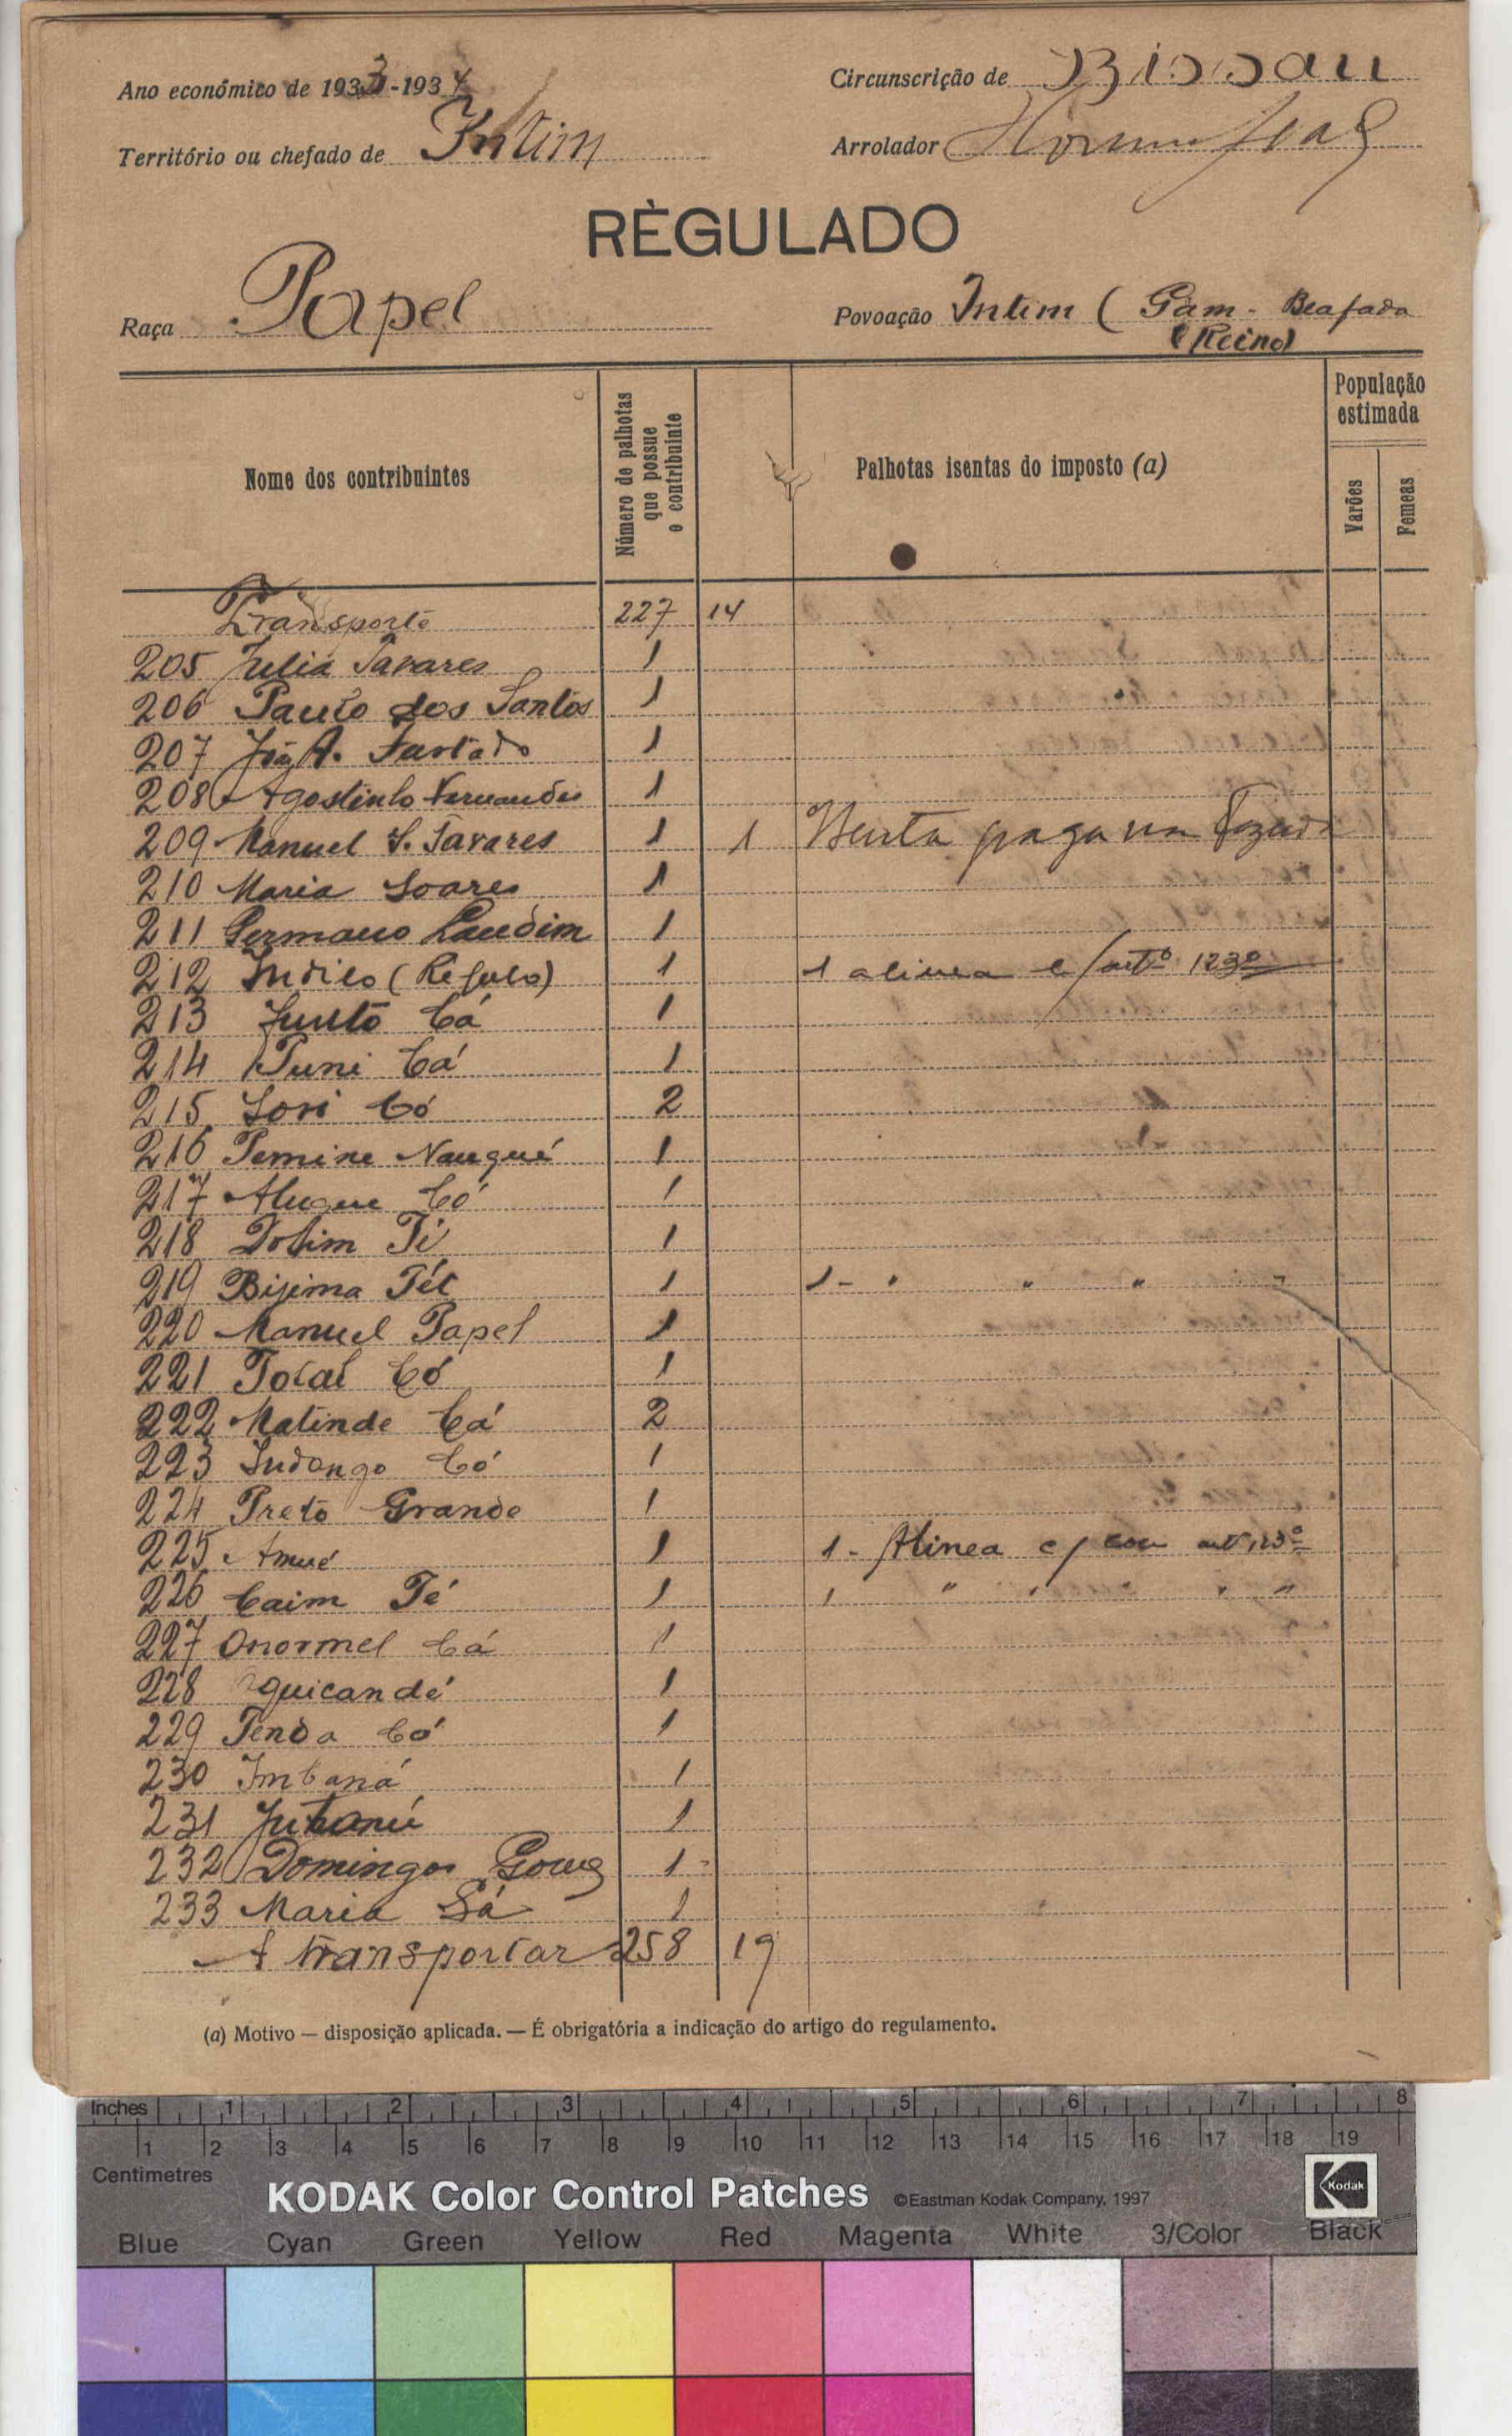 Ano económico de 1933-1934
Circunscrição de Bissau
Território ou chefado de Intim
Arrolador
RÈGULADO
Raça Papel
Povoação Intim ( Gam - Beafada
(Reino)
Nome dos contribuintes
Número de palhotas que possue o contribuinte
Palhotas isentas do imposto (a)
População estimada
Varões
Femeas
Transporte 227 14
205 Julia Tavares 1
206 Paulo dos Santos 1
207 A. Furtado 1
208 Agostinho Fernandes 1
209 Manuel S. Tavares 1 1 paga na
210 Maria Soares 1
211 Germano Landim 1
212 Indilo (Régulo) 1 1 alinea e/artº 123º
213 Junto Cá 1
214 Puni Cá 1
215 Sori Có 2
216 Pemine Nanqué 1
217 Có 1
218 Dotim Ti 1
219 Bijima Té 1 1 - " " " "
220 Manuel Papel 1
221 Total Có 1
222 Matinde Cá 2
223 Indongo Có 1
224 Preto Grande 1
225 Amué 1 1 - Alinea c/ artº 123º
226 Caim Té 1 1 " " " " "
227 Onormel Cá 1
228 quicandé 1
229 Tenda Có 1
230 Imbaná 1
231 1
232 Domingos Gomes 1
233 Maria Sá 1
A transportar 258 19
(a) Motivo — disposição aplicada. — É obrigatória a indicação do artigo do regulamento.
Inches 1 2 3 4 5 6 7 8
1 2 3 4 5 6 7 8 9 10 11 12 13 14 15 16 17 18 19
Centimetres
KODAK Color Control Patches ©Eastman Kodak Company, 1997 Kodak
Blue Cyan Green Yellow Red Magenta White 3/Color Black